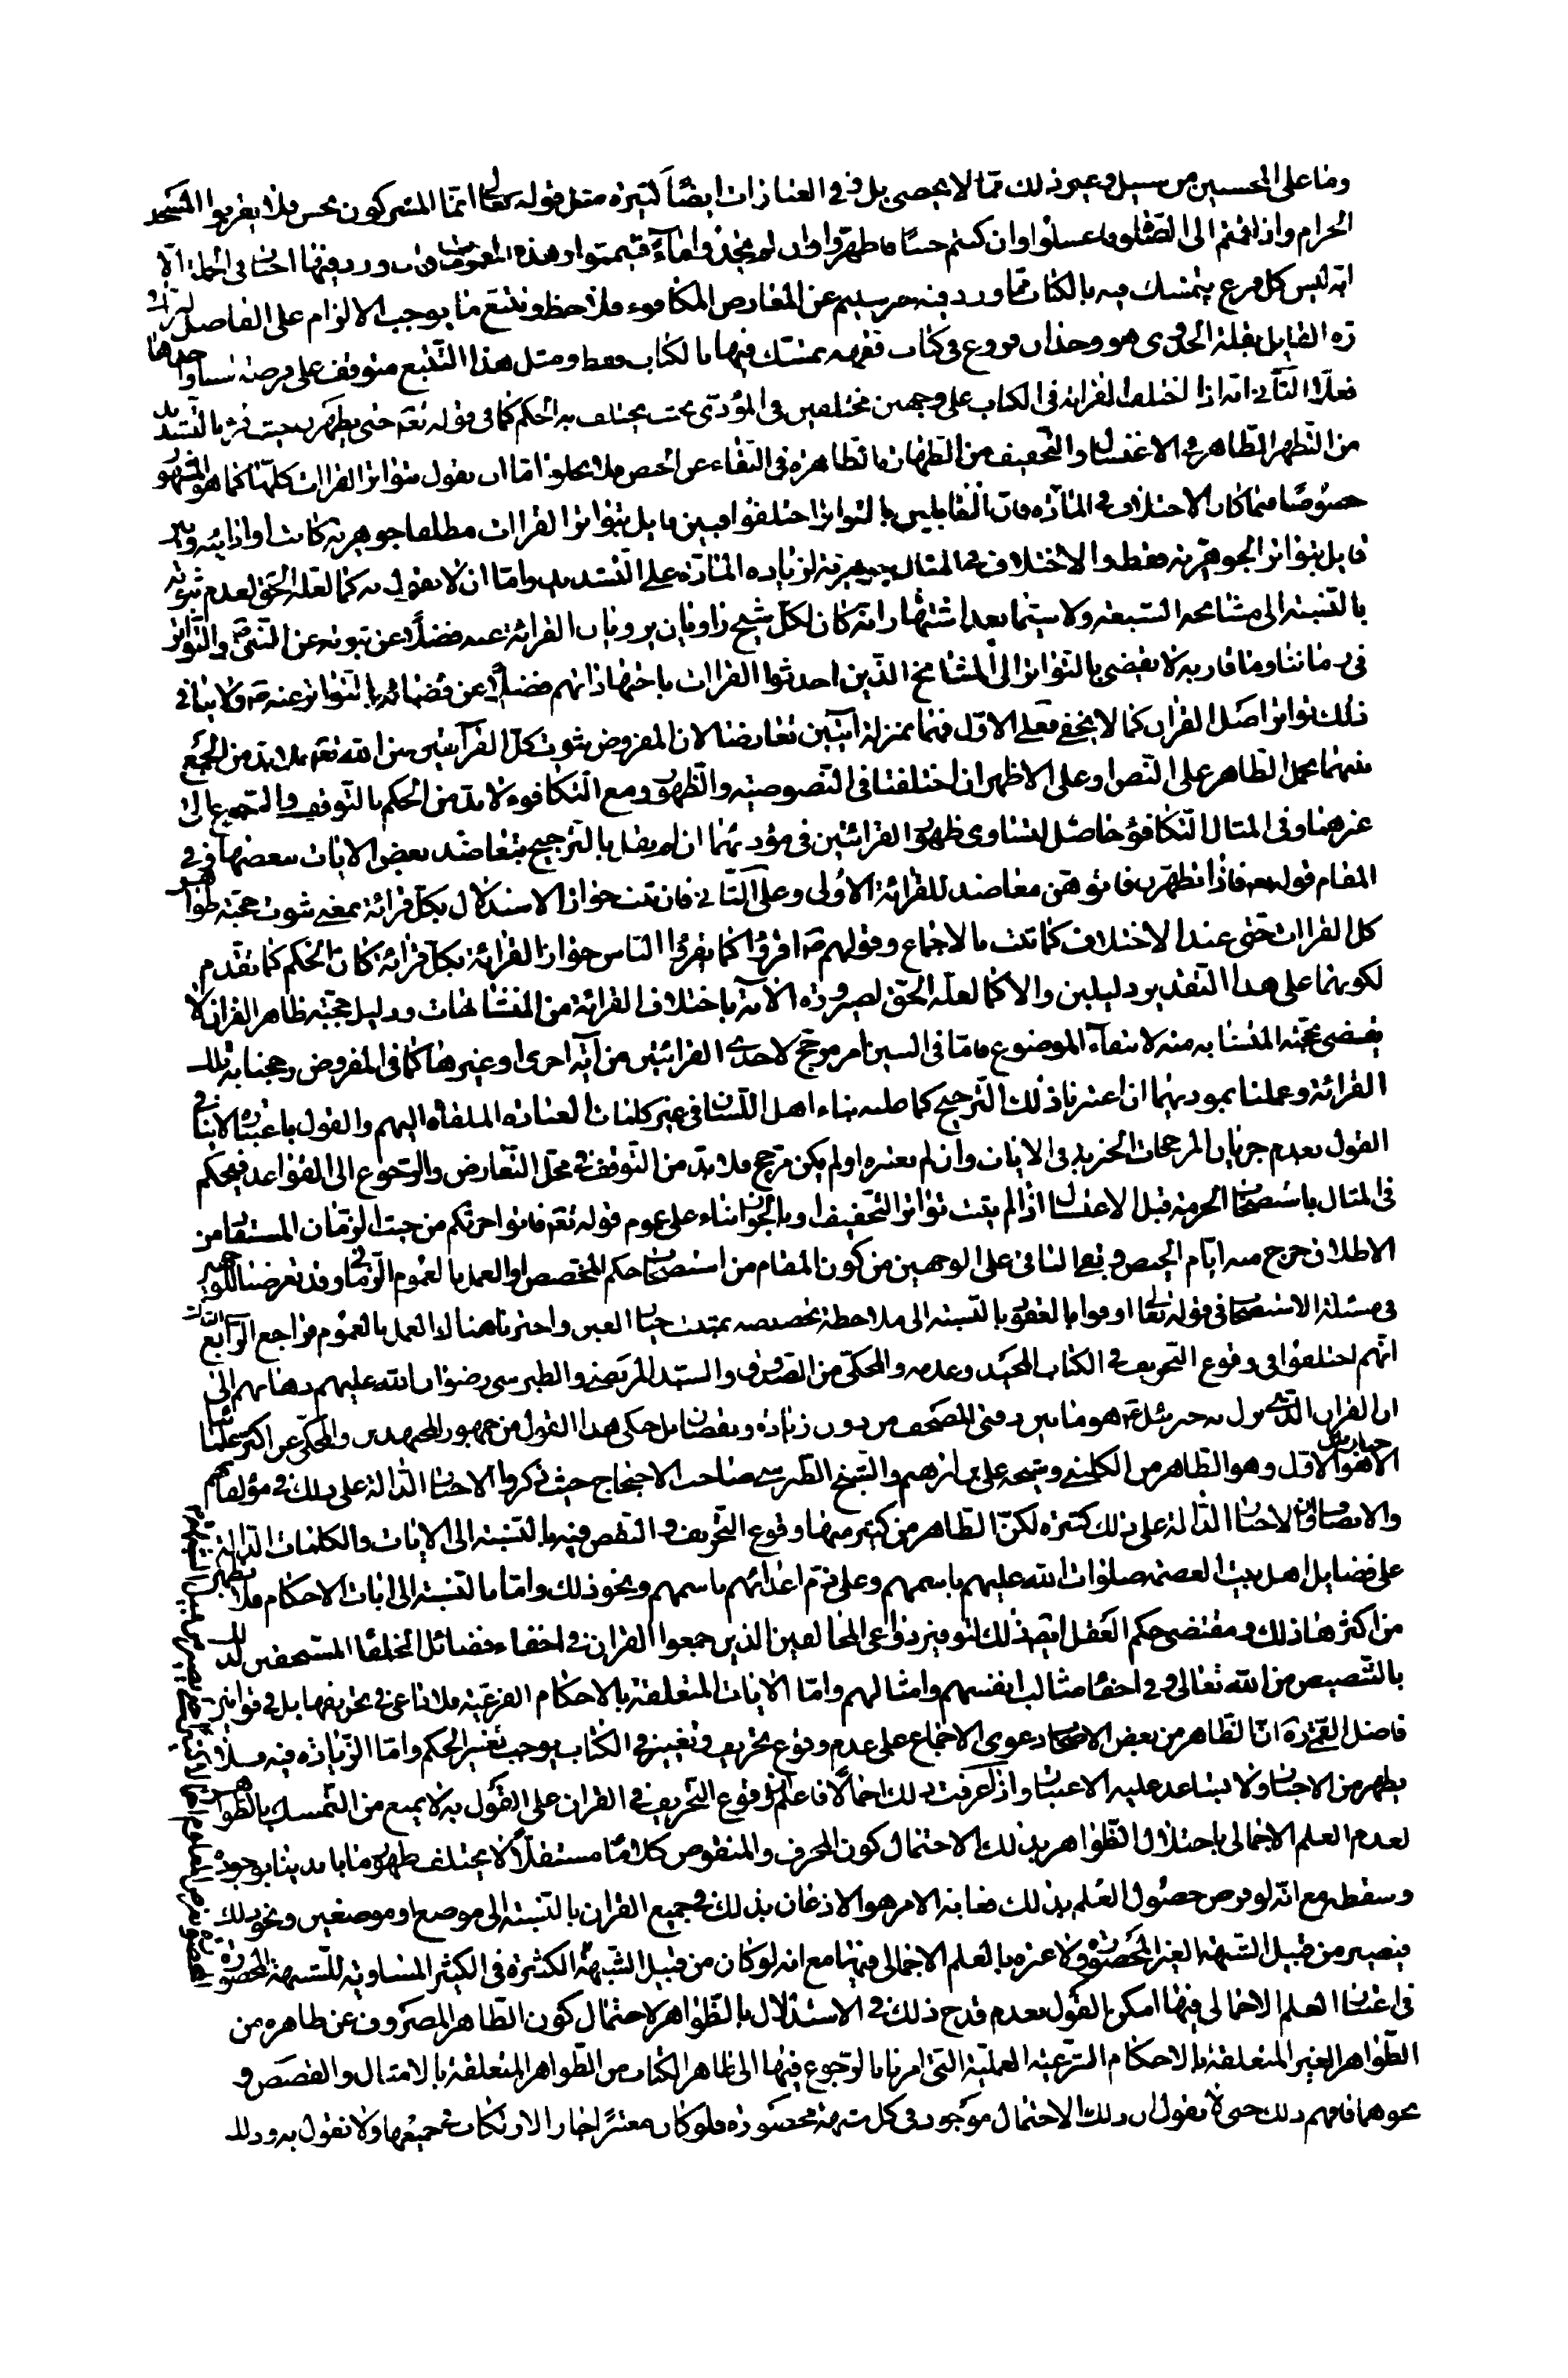 وما على المحسنين من سبيل وغير ذلك مما لا يحصى بل وفى العبادات ايضاً كثيرة مثل قوله تعالى انما المشركون نجس فلا يقربوا المسجد
الحرام واذا قمتم الى الصلوة فاغسلوا وان كنتم جنبًا فاطهّروا وان لم تجدوا مآءً فتيمموا وهذه العمومات وان ورد فيها اخبار فى الجملة الّا
انه ليس كل فرع يتمسك فيه بالكتاب مما ورد فيه خبر سليم عن المعارض المكافوء فلاحظ وتتبع ما يوجب الالزام على الفاضل النراقى
ره القايل بقلة الجدوى هو وجدان فروع فى كتاب فقهيه يمسّك فيها بالكتاب فقط ومثل هذا التتبع متوقف على فرصة نسأل واحدها
فعلاً الثانى انه اذا اختلف القرائة فى الكتاب على وجهين مختلفين فى المؤدّى بحيث يختلف به الحكم كما فى قوله تعم حتى يطهرن حيث قرء بالتشديد
من التطهر الظاهر فى الاغتسال والتخفيف من الطهارة الظاهرة فى النقاء عن الحيض فلا يخلو اما ان نقول بتواتر القراات كلها كما هو المشهور
خصوصًا فيما كان الاختلاف فى المادّة فان القايلين بالتواتر اختلفوا فبين قايل بتواتر القراات مطلقا جوهرية كانت او ادائية وبين
قايل بتواتر الجوهرية فقط والاختلاف فى المثال جوهرية لزيادة المادّة على التشديد واما ان لا نقول به كما لعله الحق لعدم ثبوته
بالنسبة الى مشايخه السبعة ولا سيّما بعد اشتهار انه كان لكل شيخ راويان يرويان القرائة عنه فضلًا عن ثبوته عن النبى ص والتواتر
فى زماننا وما قاربه لا يفضى بالتواتر الى المشايخ الذين احدثوا القراات باجتهاداتهم فضلًا عن قضائه بالتواتر عنه ص ولا ينافى
ذلك تواتر اصل القران كما لا يخفى فعلى الاول فهما بمنزلة ايتين تعارضتا لان المفروض ثبوت كل القرائتين من الله تعم فلا بد من الجمع
بينهما بحمل الظاهر على النص او على الاظهر ان اختلفتا فى النصوصيه والظهور ومع التكافوء لا بد من الحكم بالتوقف والرجوع الى
غيرهما وفى المثال التكافؤ حاصل لتساوى ظهور القرائتين فى مؤديهما ان لم يقل بالترجيح بتعاضد بعض الايات ببعضها وفى
المقام قوله تعم فاذا تطهرن فاتوهن معاضد للقرائة الاولى وعلى الثانى فان ثبت جواز الاستدلال بكل قرائة بمعنى ثبوت حجية ظواهر
كل القراات حتى عند الاختلاف كما ثبت بالاجماع وقولهم ع اقرؤا كما يقرؤا الناس جواز القرائة بكل قرائة كان الحكم كما تقدم
لكونهما على هذا التقدير دليلين والا كما لعله الحق لصيرورة الآية باختلاف القرائة من المتشابهات ودليل حجية ظاهر القران لا
يقتضى حجية المتشابه منه لانتفآء الموضوع فاما فى البين امر مرجح لاحدى القرائتين من آية اخرى او غيرها كما فى المفروض رجحنا به تلك
القرائة وعملنا بموديهما ان اعتبرنا ذلك الترجيح كما عليه بناء اهل اللسان فى غير كلمات العباد الملقاة اليهم والقول باعتباره لا ينافى
القول بعدم جريان المرجحات الخبرية فى الايات وان لم نعتبره او لم يكن مرجح فلا بد من التوقف فى محل التعارض والرجوع الى القواعد فيحكم
فى المثال باستصحاب الحرمة قبل الاغتسال اذا لم يثبت تواتر التخفيف او بالجواز بناء على عموم قوله تعم فاتوا حرثكم من حيث الزمان المستفاد من
الاطلاق خرج منه ايام الحيض وبقى الباقى على الوجهين من كون المقام من استصحاب حكم المخصص او العمل بالعموم الزمانى وقد تعرضنا للوجهين
فى مسئلة الاستصحاب فى قوله تعالى اوفوا بالعقود بالنسبة الى ملاحظة تخصيصه بمثبت خيار الغبن واخترنا هنالك العمل بالعموم فراجع الرابع
انهم اختلفوا فى وقوع التحريف فى الكتاب المجيد وعدمه والمحكى من الصدوق والسيد المرتضى والطبرسى رضوان الله عليهم ذهابهم الى
ان القران الذى نزل به جبرئيل ع هو ما بين دفتى المصحف من دون زيادة ونقصان بل حكى هذا القول من جمهور المجتهدين والمحكى عن اكثر علمائنا
الاخباريين هو الاول وهو الظاهر من الكلينى وشيخه على بن ابرهيم والشيخ الطبرسى صاحب الاحتجاج حيث ذكروا الاخبار الدالة على ذلك فى مؤلفاتهم
والانصاف ان الاخبار الدالة على ذلك كثيرة لكن الظاهر من كثير منها وقوع التحريف والنقص فيه بالنسبة الى الايات والكلمات الدالة
على فضايل اهل بيت العصمة صلوات الله عليهم باسمهم وعلى ذم اعدائهم باسمهم ونحو ذلك واما بالنسبة الى ايات الاحكام فلا يظهر
من اكثرها ذلك ومقتضى حكم العقل ايضا ذلك لتوفر دواعى المخالفين الذين جمعوا القران فى اخفاء فضائل الخلفاء المستحقين لذلك
بالتنصيص من الله تعالى وفى اخفاء مثالب انفسهم وامثالهم واما الايات المتعلقة بالاحكام الفرعية فلا داعى فى تحريفها بل فى قوانين
فاضل القمى ره ان الظاهر من بعض الاصحاب دعوى الاجماع على عدم وقوع تحريف وتغيير فى الكتاب يوجب تغيير الحكم واما الزيادة فيه فلا
يظهر من الاخبار ولا يساعد عليه الاعتبار واذ عرفت ذلك اجمالًا فاعلم ان وقوع التحريف فى القران على القول به لا يمنع من التمسك بالظواهر
لعدم العلم الاجمالى باختلال الظواهر بذلك لاحتمال كون المحرف والمنقوص كلامًا مستقلًا لا يختلف ظهور ما بايدينا بوجوده
وسقطه مع انه لو فرض حصول العلم بذلك فغاية الامر هو الاذعان بذلك فى جميع القران بالنسبة الى موضع او موضعين ونحو ذلك
فيصير من قبيل الشبهة الغير المحصورة ولا عبرة بالعلم الاجمالى فيهما مع انه لو كان من قبيل الشبهة الكثيرة فى الكثير المساوية للشبهة المحصورة
فى اعتبار العلم الاجمالى فيها امكن القول بعدم قدح ذلك فى الاستدلال بالظواهر لاحتمال كون الظاهر المصروف عن ظاهره من
الظواهر الغير المتعلقة بالاحكام الشرعية العملية التى امرنا بالرجوع فيها الى ظاهر الكتاب من الظواهر المتعلقة بالامثال والقصص و
نحوهما فافهم ذلك حتى لا تقول ان ذلك الاحتمال موجود فى كل شبهة محصورة فلو كان معتبرًا جاز الارتكاب فى جميعها ولا نقول به وذلك